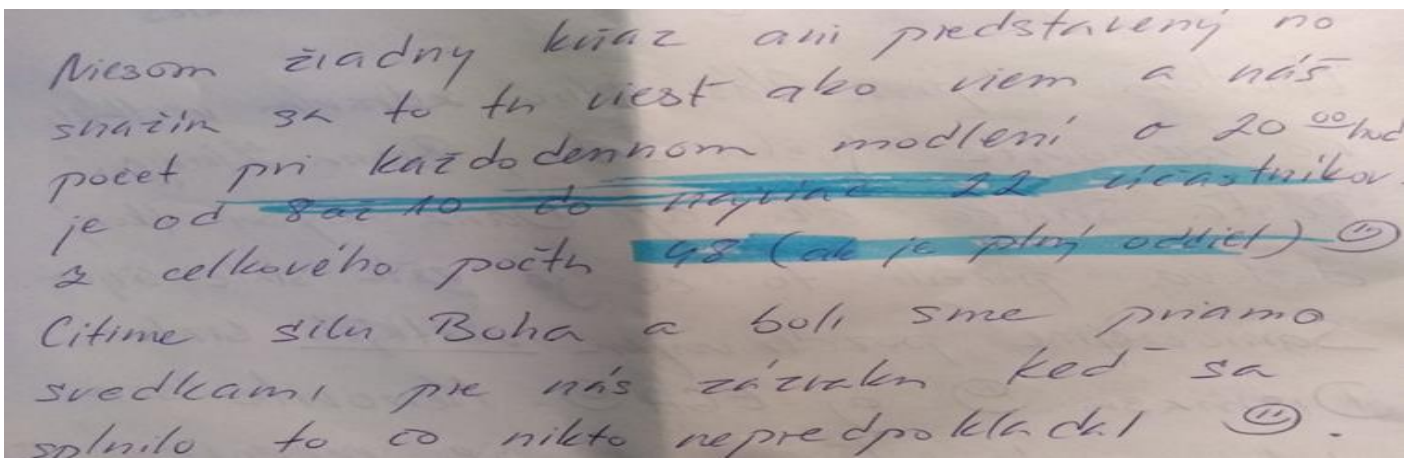 Niesom žiadny kňaz ani predstavený no
snažím sa to tu viesť ako viem a náš
počet pri každodennom modlení o 20 00 hod
je od 8 až 10 do najviac 22 účastníkov.
z celkového počtu 48 (ak je plný oddiel) ☺
Cítime silu Boha a boli sme priamo
svedkami pre nás zázraku keď sa
splnilo to čo nikto nepredpokladal ☺.